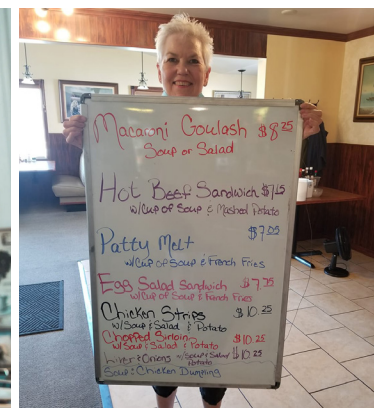 Macaroni Goulash $8.25
Soup or Salad
Hot Beef Sandwich
w/Cup of Soup & Mashed Potato
Patty Melt
w/Cup of Soup & French Fries
Egg Salad Sandwich
w/Cup of Soup & French Fries
Chicken Strips $10.25
w/Soup & Salad & Potato
Chopped Sirloin $10.25
w/Soup & Salad & Potato
Liver & Onions w/Soup & Salad $10.25
Potato
Soup: Chicken Dumpling